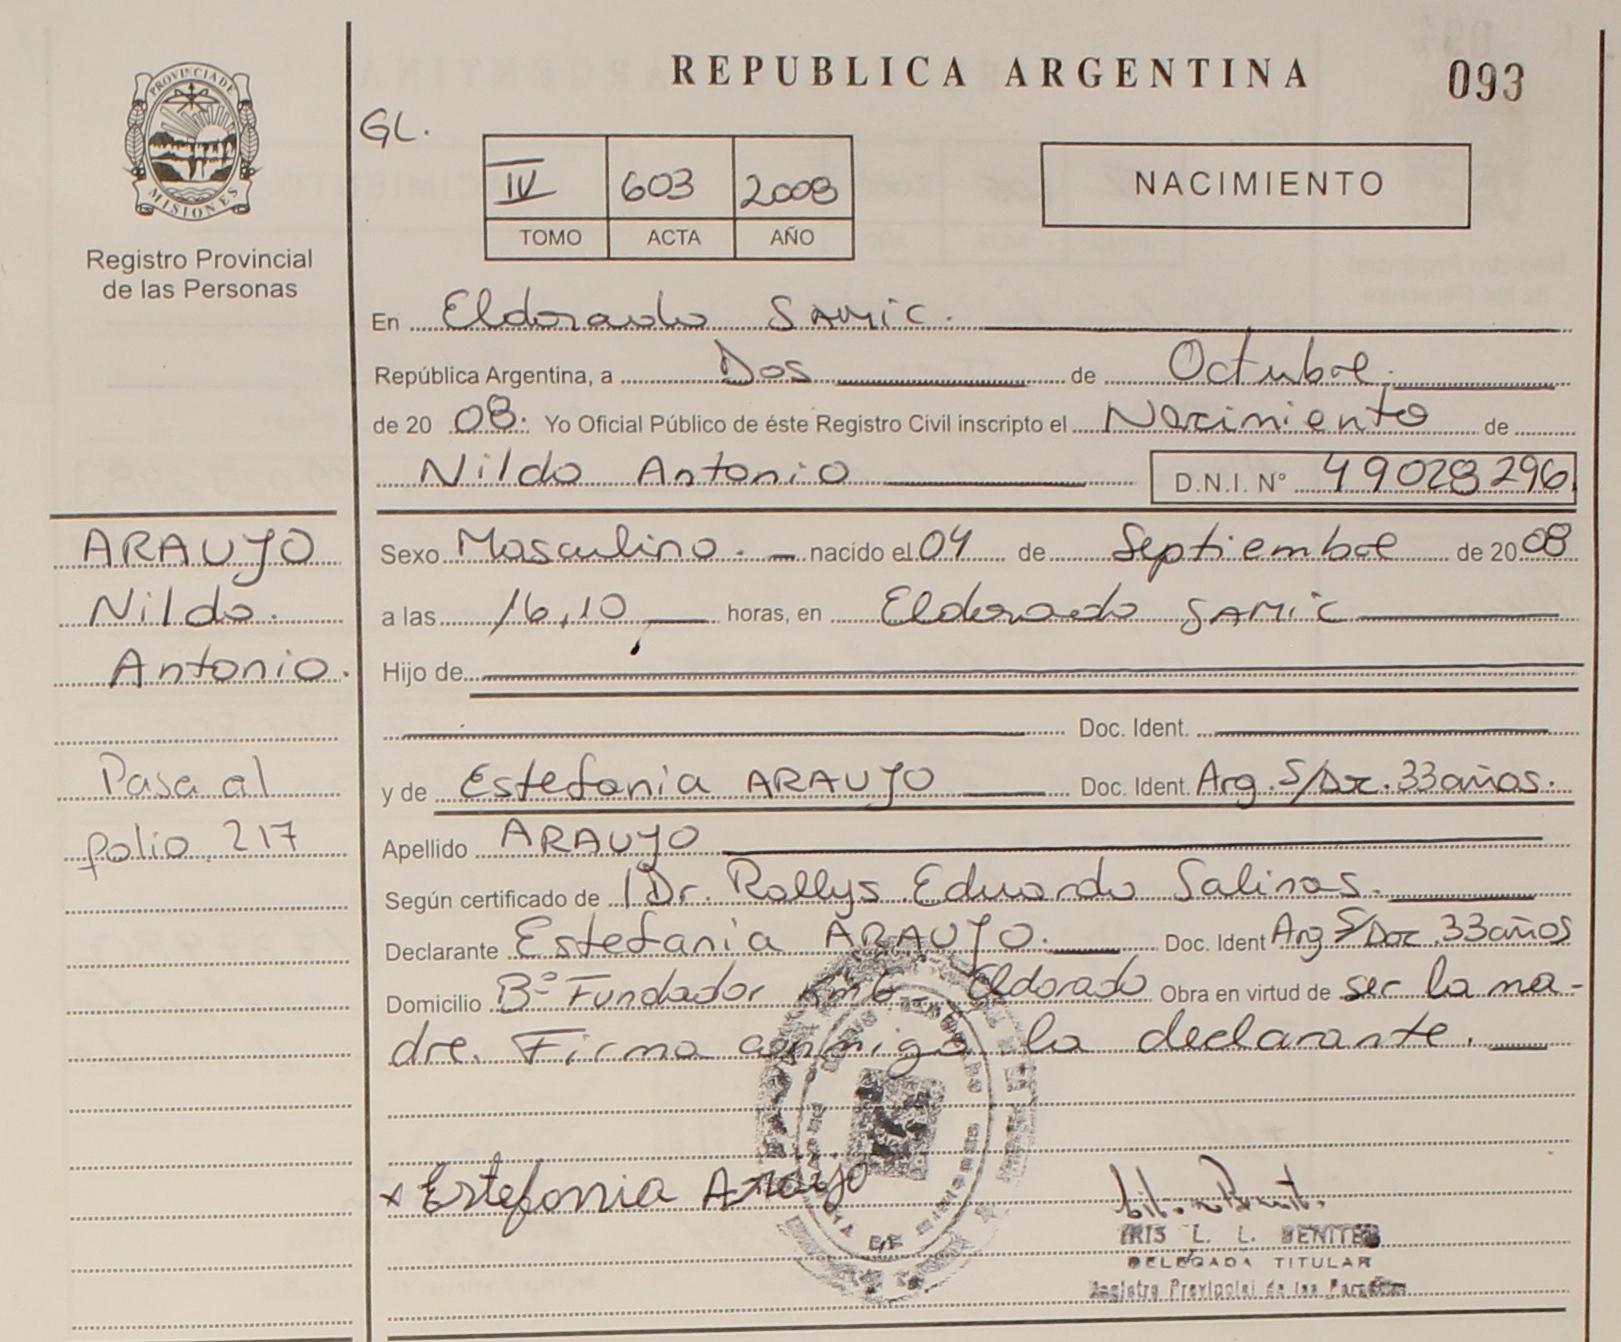 REPUBLICA ARGENTINA 093
PROVINCIA DE
MISIONES
Registro Provincial
de las Personas
GL.
IV 603 2008
TOMO ACTA AÑO
NACIMIENTO
En Eldorado SAMIC.
República Argentina, a Dos de Octubre.
de 20 08. Yo Oficial Público de éste Registro Civil inscripto el Nacimiento de
Nildo Antonio D.N.I. N° 49028296
ARAUJO
Nildo.
Antonio.
Pasa al
folio 217
Sexo Masculino. nacido el 04 de Septiembre de 20 08
a las 16,10 horas, en Eldorado SAMIC
Hijo de
Doc. Ident.
y de Estefania ARAUJO Doc. Ident. Arg. S/Doc. 33 años.
Apellido ARAUJO
Según certificado de Dr. Rollys Eduardo Salinas.
Declarante Estefania ARAUJO. Doc. Ident Arg S/Doc. 33 años
Domicilio B° Fundador Km6 Eldorado Obra en virtud de ser la ma-
dre. Firma conmigo la declarante.
x Estefonia Araujo
IRIS L. L. BENITEZ
DELEGADA TITULAR
Registro Provincial de las Personas